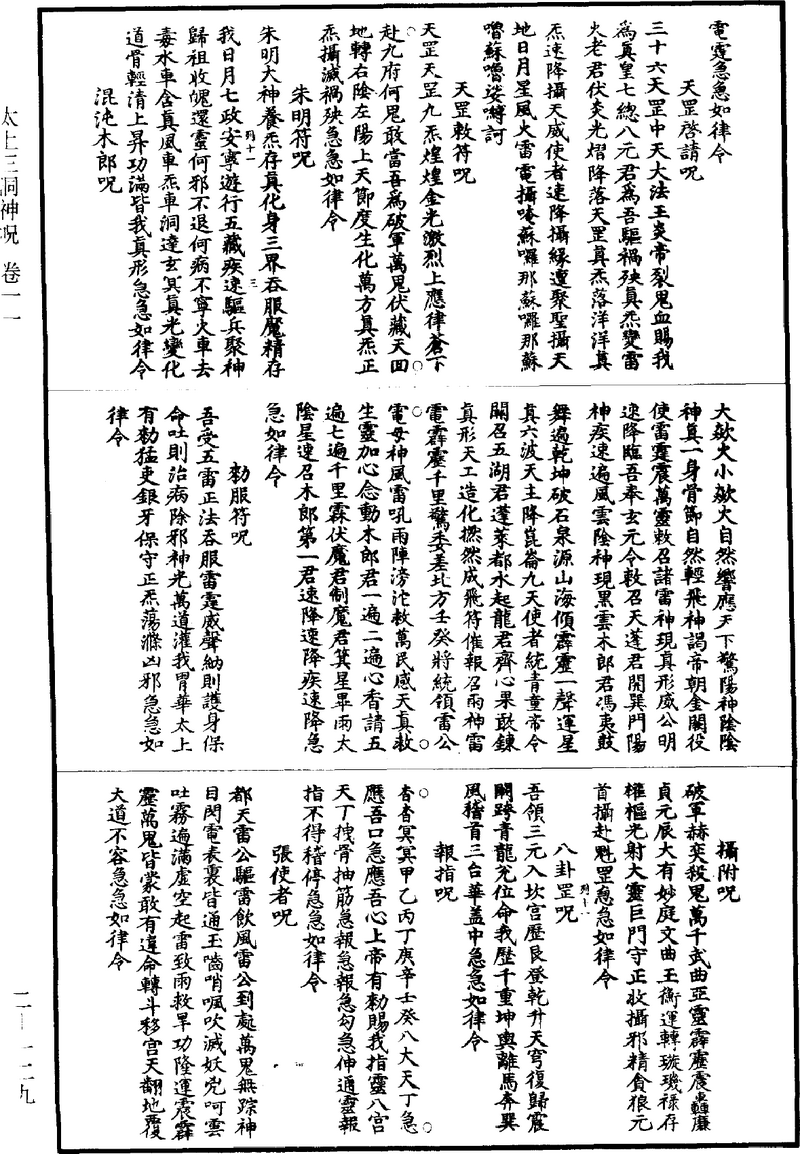 電霆急急如律令
天罡啓請呪
三十六天罡中天大法王炎帝裂鬼血賜我
爲真皇七總八元君爲吾驅禍殃真炁變雷
火老君伏炎光熠降落天罡真炁落洋洋真
炁速降攝天威使者速降攝緣遑聚聖攝天
地日月星風火雷電攝唵蘇囉那蘇囉那蘇
嚕蘇嚕娑嚩訶
天罡敕符呪
天罡天罡九炁煌煌金光激烈上應律蒼下
赴九府何鬼敢當吾爲破軍萬鬼伏藏天回
地轉右陰左陽上天節度生化萬方真炁正
炁攝滅禍殃急急如律令
朱明符呪
朱明大神養炁存真化身三界吞服魔精存
我日月七政安寧遊行五藏疾速驅兵聚神
歸祖收魄還靈何邪不退何病不寧火車去
毒水車含真風車炁車洞達玄冥真光變化
道骨輕清上昇功滿皆我真形急急如律令
混沌木郎呪
大欻火小欻火自然響應天下驚陽神陰陰
神真一身骨節自然輕飛神謁帝朝金闕役
使雷霆震萬靈敕召諸雷神現真形威公明
速降臨吾奉玄元令敕召天蓬君開巽門陽
神疾速遍風雲陰神現黑雲木郎君馮夷鼓
舞遍乾坤破石泉源山海傾霹靂一聲運星
真六波天主降崑崙九天使者統青童帝令
關召五湖君蓬萊都水起龍君齊心果敢鍊
真形天工造化撚然成飛符催報召雨神雷
電霹靂千里驚委差北方壬癸將統領雷公
電母神風雷吼雨陣滂沱救萬民感天真救
生靈加心念動木郎君一遍二遍心香請五
遍七遍千里霖伏魔君制魔君箕星畢雨太
陰星速召木郎第一君速降速降疾速降急
急如律令
勑服符呪
吾受五雷正法吞服雷霆威聲納則護身保
命吐則治病除邪神光萬道灌我胃華太上
有勑猛吏銀牙保守正炁蕩滌凶邪急急如
律令
攝附呪
破軍赫奕殺鬼萬千武曲亞靈霹靂震轟廉
貞元展大有妙庭文曲玉衡運轉璇璣祿存
權樞光射大靈巨門守正收攝邪精貪狼元
首攝赴魁罡急急如律令
八卦罡呪
吾領三元入坎宮歷艮登乾升天穹復歸震
關跨青龍兌位命我歷千重坤輿離馬奔巽
風稽首三台華盖中急急如律令
報指呪
杳杳冥冥甲乙丙丁庚辛壬癸八大天丁急
應吾口急應吾心上帝有勑賜我指靈八宮
天丁拽骨抽筋急報急報急勾急伸通靈報
指不得稽停急急如律令
張使者呪
都天雷公驅雷飲風雷公到處萬鬼無踪神
目閃電表裏皆通玉嚙哨喝吹滅妖兇呵雲
吐霧遍滿虛空起雷致雨救旱功隆運震霹
靂萬鬼皆蒙敢有違命轉斗移宮天翻地覆
大道不容急急如律令
太上三洞神呪 卷一一
二—一二九